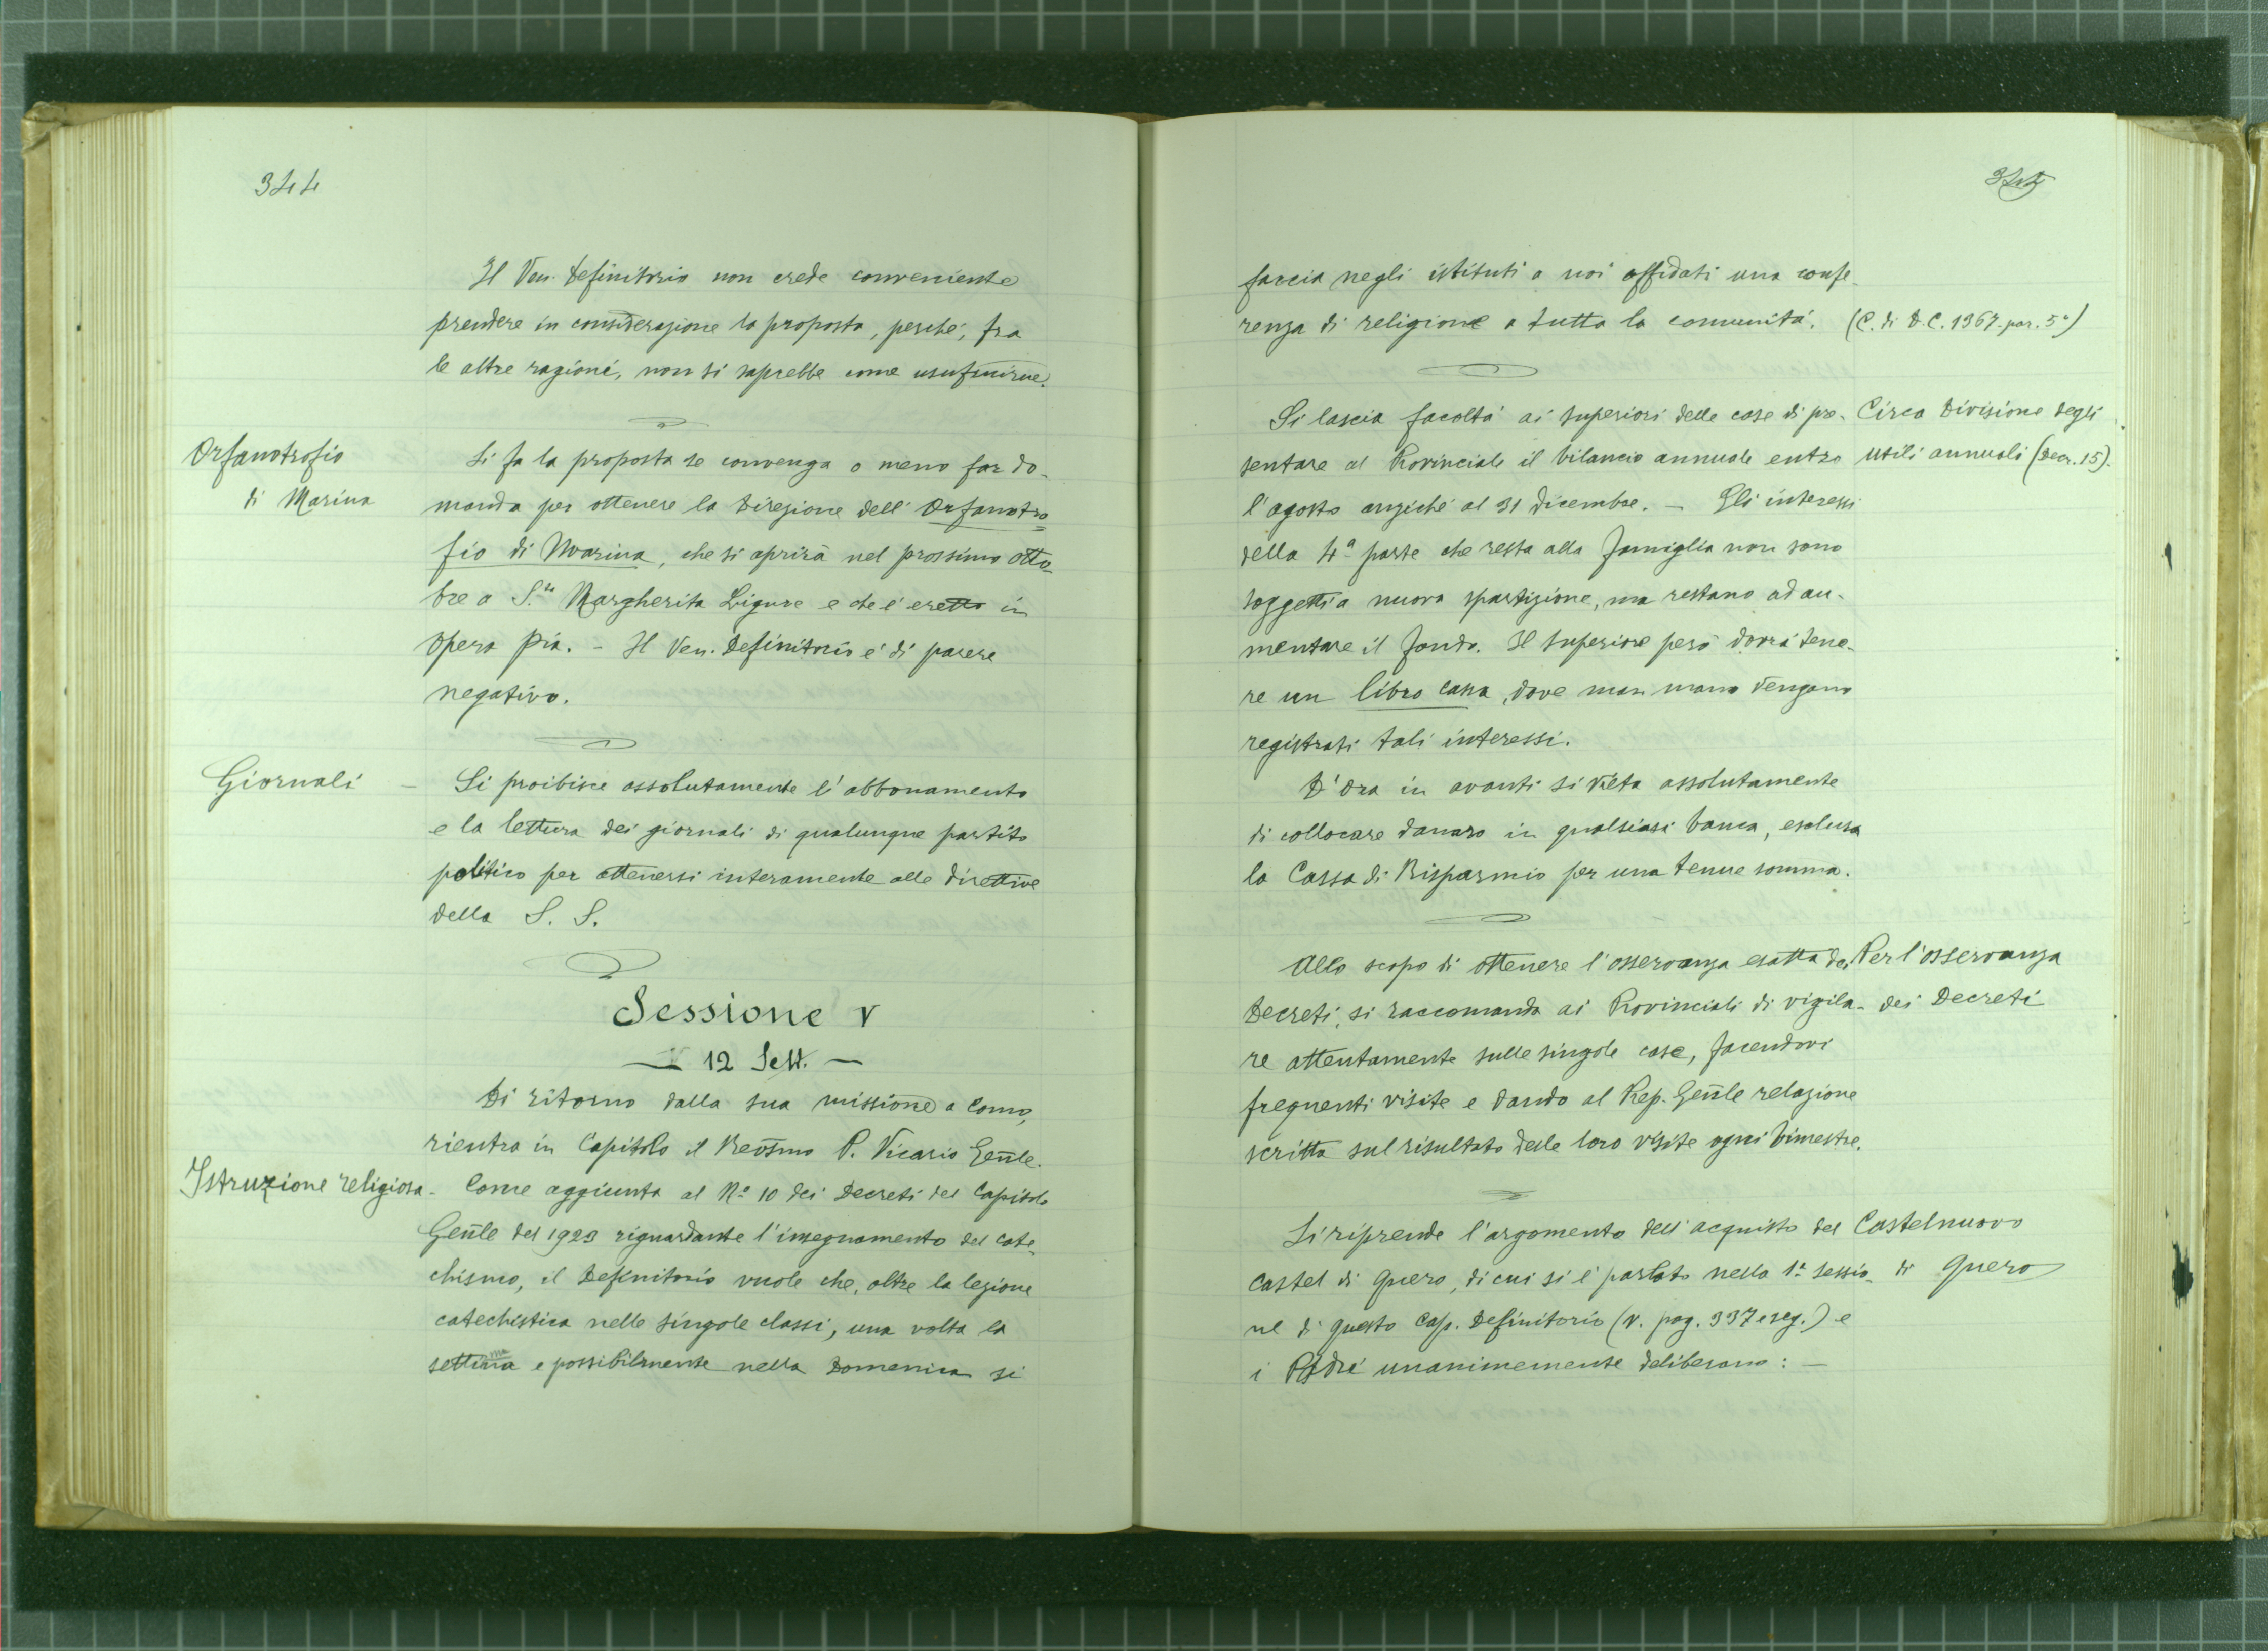 344
Il Ven. Definitorio non crede conveniente
prendere in considerazione la proposta, perché, fra
le altre ragioni, non si saprebbe come usufruirne.
Orfanotrofio
di Marina
Si fa la proposta se convenga o meno far do-
manda per ottenere la Direzione dell'Orfanotro=
fio di Marina, che si aprirà nel prossimo otto-
bre a S.ta Margherita Ligure e che é eretto in
Opera Pia. - Il Ven. Definitorio é di parere
negativo.
Giornali -
Si proibisce assolutamente l'abbonamento
e la lettura dei giornali di qualunque partito
politico per attenersi interamente alle direttive
della S. S.
Sessione V
— 12 Sett. —
Di ritorno dalla sua missione a Como,
rientra in Capitolo il Revsmo P. Vicario Genle.
Istruzione religiosa -
Come aggiunta al N.o 10 dei Decreti del Capitolo
Genle del 1923 riguardante l'insegnamento del cate-
chismo, il Definitorio vuole che, oltre la lezione
catechistica nelle singole classi, una volta la
settimana e possibilmente nella Domenica si
345
faccia negli istituti a noi affidati una confe-
renza di religione a tutta la comunitá. (C. di D.C. 1367. par. 5°)
Si lascia facoltá ai Superiori delle case di pre-
sentare al Provinciale il bilancio annuale entro
l'agosto anziché al 31 Dicembre. - Gli interessi
della 4ª parte che resta alla famiglia non sono
soggetti a nuova spartizione, ma restano ad au-
mentare il fondo. Il Superiore però dovrá tene-
re un libro cassa, dove man mano vengano
registrati tali interessi.
Circa Divisione degli
utili annuali (Decr. 15).
D'ora in avanti si vieta assolutamente
di collocare danaro in qualsiasi banca, esclusa
la Cassa di Risparmio per una tenue somma.
Allo scopo di ottenere l'osservanza esatta dei
Decreti, si raccomanda ai Provinciali di vigila-
re attentamente sulle singole case, facendovi
frequenti visite e dando al Rep. Genle relazione
scritta sul risultato delle loro visite ogni bimestre.
Per l'osservanza
dei Decreti
Si riprende l'argomento dell'acquisto del
Castel di Quero, di cui si é parlato nella 1ª sessio-
ne di questo Cap. Definitorio (v. pag. 337 e seg.) e
i Padri unanimemente deliberano: -
Castelnuovo
di Quero